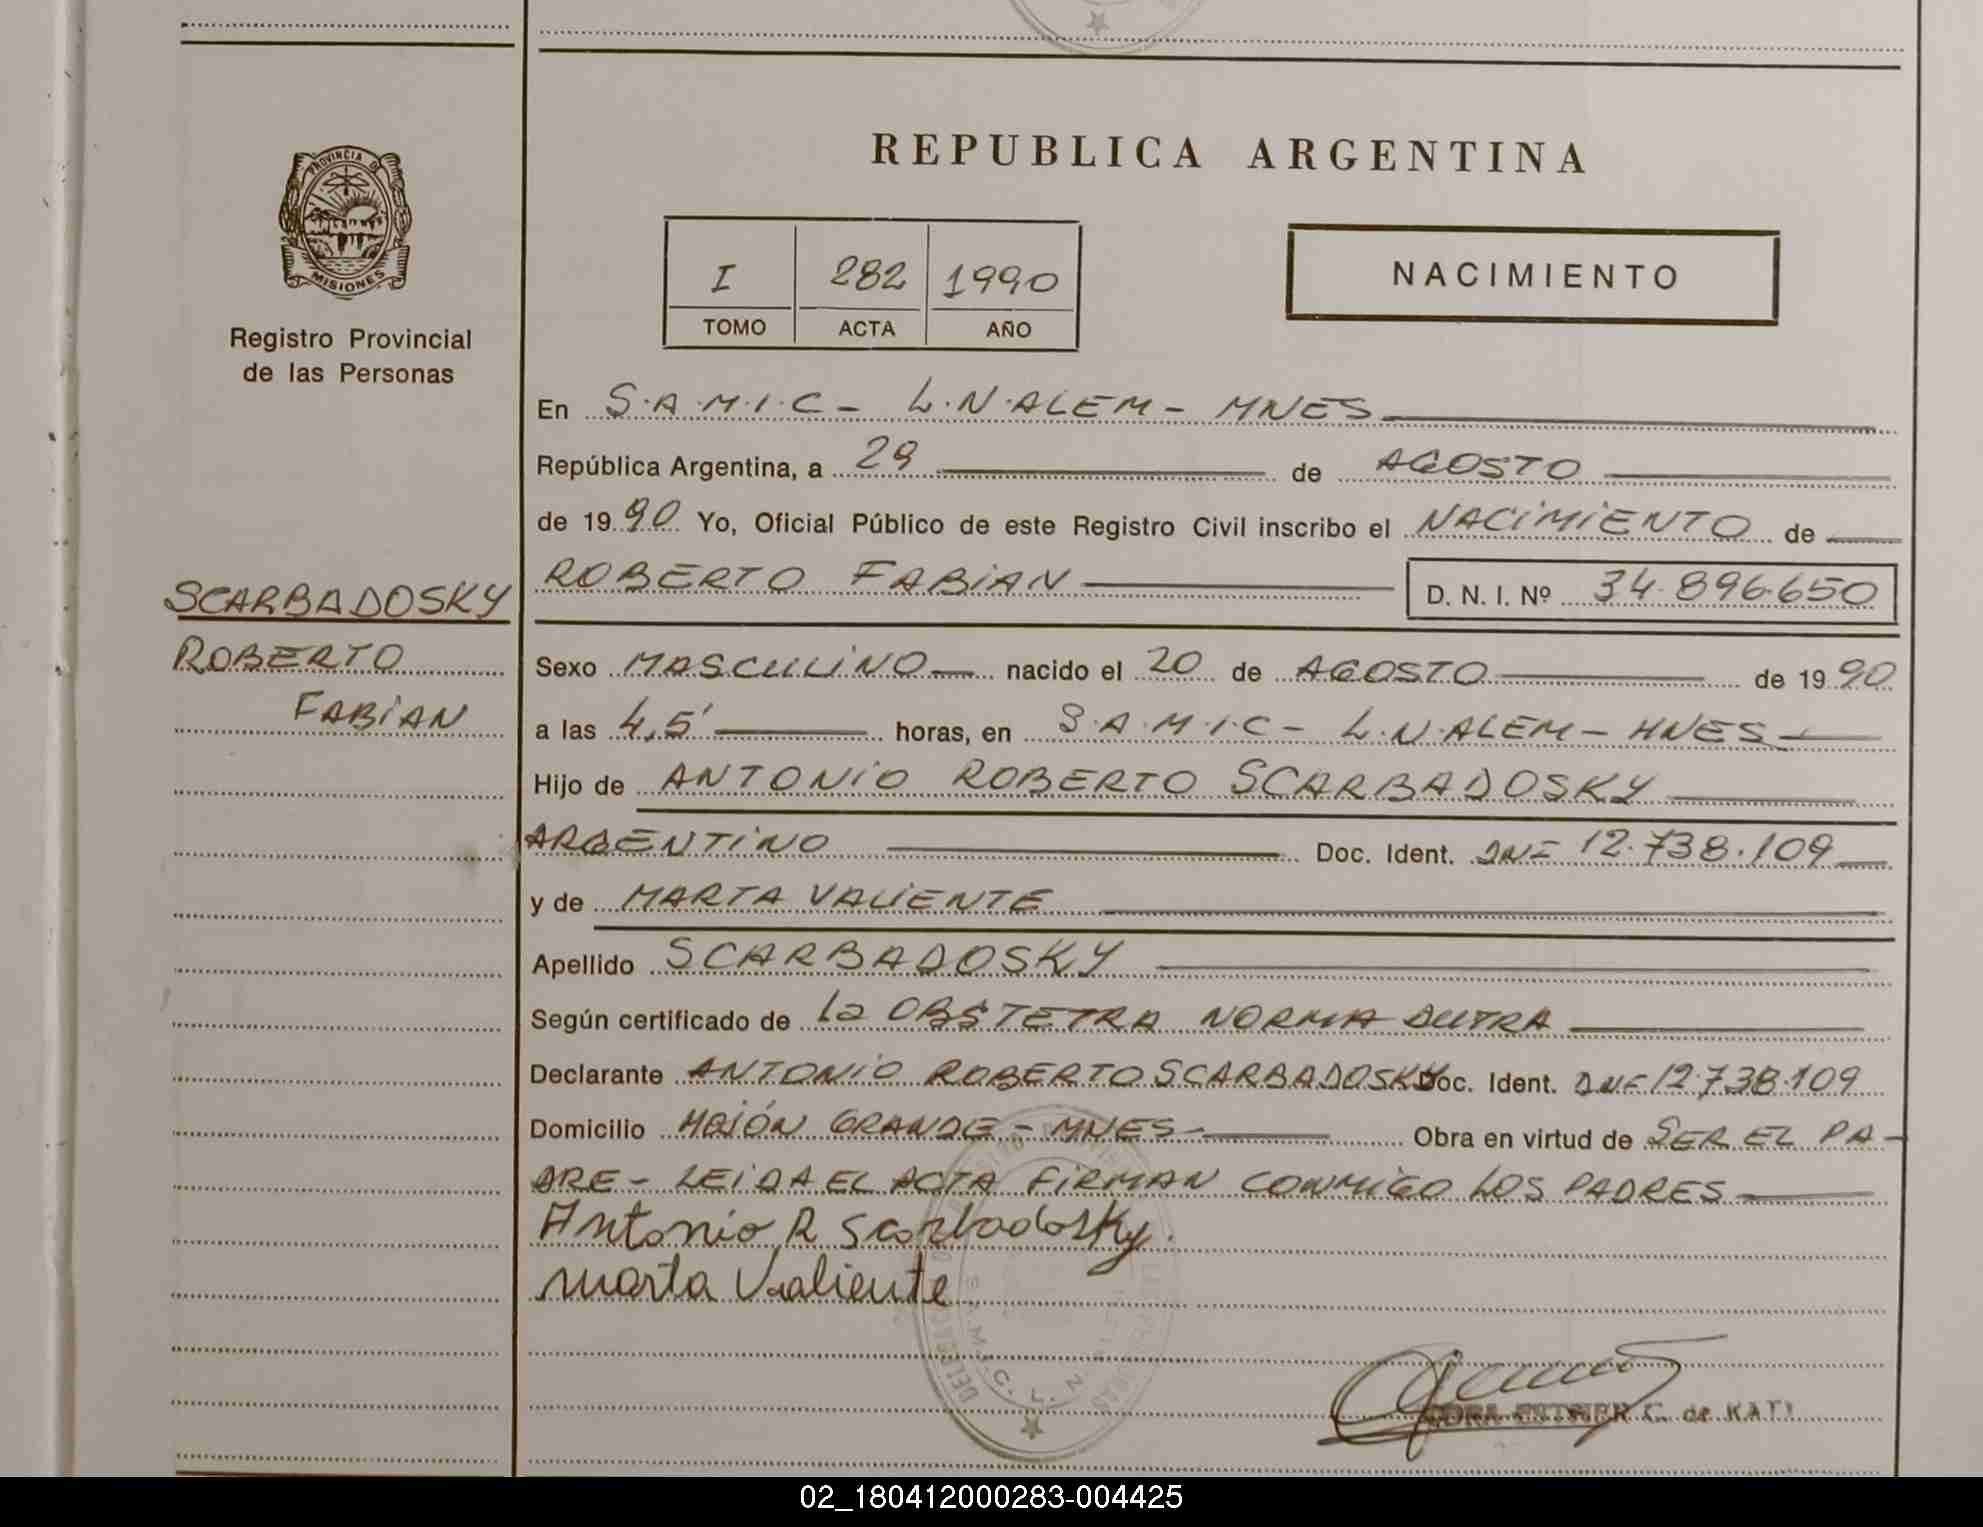 PROVINCIA DE
MISIONES
Registro Provincial
de las Personas
SCARBADOSKY
ROBERTO
FABIAN
REPUBLICA ARGENTINA
I 282 1990
TOMO ACTA AÑO
NACIMIENTO
En S.A.M.I.C - L.N.ALEM - MNES
República Argentina, a 29 de AGOSTO
de 1990 Yo, Oficial Público de este Registro Civil inscribo el NACIMIENTO de
ROBERTO FABIAN D. N. I. Nº 34.896.650
Sexo MASCULINO nacido el 20 de AGOSTO de 1990
a las 4,5' horas, en S.A.M.I.C - L.N.ALEM - MNES
Hijo de ANTONIO ROBERTO SCARBADOSKY
ARGENTINO Doc. Ident. DNI 12.738.109
y de MARTA VALIENTE
Apellido SCARBADOSKY
Según certificado de la OBSTETRA NORMA DUTRA
Declarante ANTONIO ROBERTO SCARBADOSKY Doc. Ident. DNI 12.738.109
Domicilio MOJÓN GRANDE - MNES - Obra en virtud de SER EL PA-
DRE - LEIDA EL ACTA FIRMAN CONMIGO LOS PADRES
Antonio R Scarbadosky.
Marta Valiente
S.A.M.I.C. L. N.
C. de KATZ
02_180412000283-004425